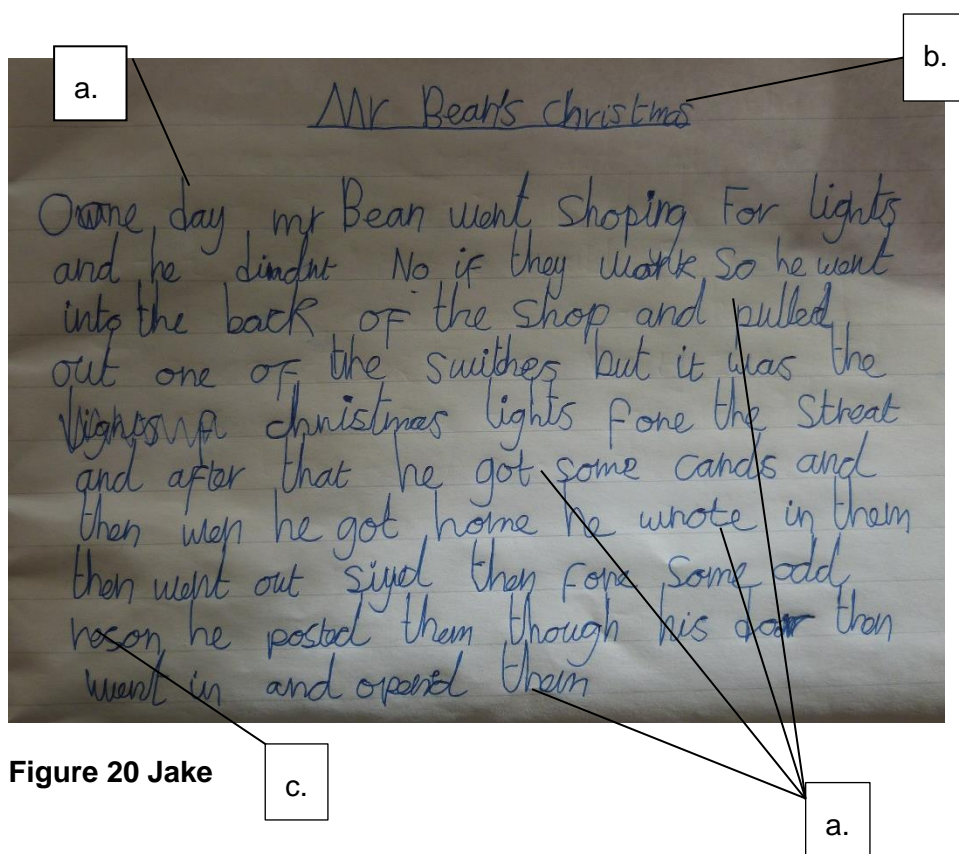 a.
b.
Mr Bean's christmas
day mr Bean went shoping For lights
and he No if they work So he went
into the back of the shop and pulled
out one of the swithes but it was the
christmas lights fore the Streat
and after that he got some cards and
then wen he got home he wrote in them
then went out siyed then fore Some odd
reson he posted them though his door then
went in and opend them
Figure 20 Jake
c.
a.